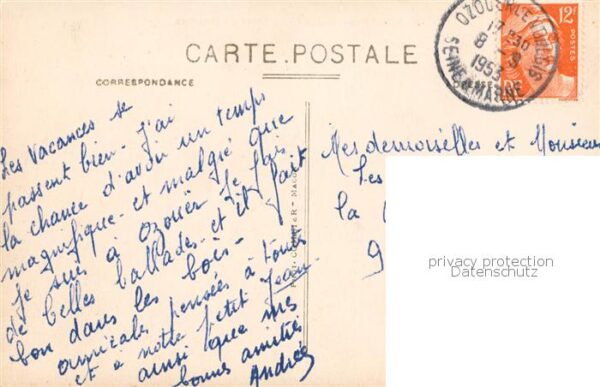 CARTE POSTALE
CORRESPONDANCE
OZOUER-LE-VOULGIS
17 30
8 - 9
1953
SEINE & MARNE
12F
POSTES
Les Vacances se
passent bien - j'ai
la chance d'avoir un temps
magnifique - et malgré que
je suis à Ozouër je fais
de belles ballades - et il fait
bon dans les bois -
amicales pensées à toutes
et à notre petit Jean
ainsi que mes
bonnes amitiés
Andrée
Mesdemoiselles et Monsieur
Les
la
9
privacy protection
Datenschutz